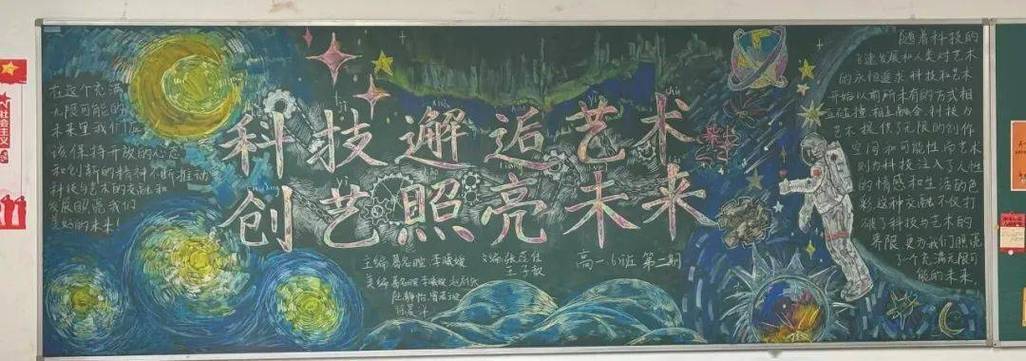 在这个充满
无限可能的
未来里我们应
该保持开放的心态
和创新的精神不断推动
科技与艺术的交融和
发展 照亮我们
美好的未来!
科技邂逅艺术
创艺照亮未来
主编
美编
高一.6班 第二期
随着科技的
飞速发展和人类对艺术
的永恒追求 科技和艺术
开始以前所未有的方式相
互碰撞 相互融合.科技为
艺术提供了无限的创作
空间和可能性而艺术
则为科技注入了人性
的情感和生活的色
彩这种交融不仅打
破了科技与艺术的
界限 更为我们照亮
了一个充满无限可
能的未来.
社会主义